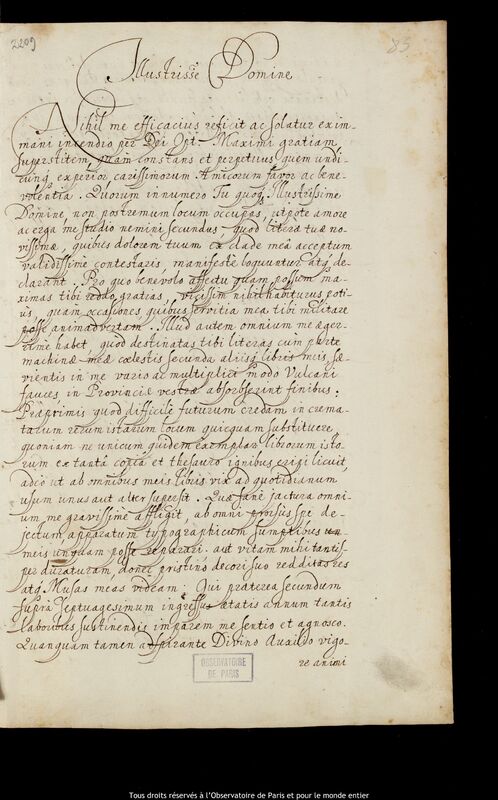 2209
85
Illustrissē Domine
Nihil me efficacius reficit ac solatur exim-
mani incendio per Dei Opt. Maximi gratiam
superstitem, quam constans et perpetuus quem undi-
cunq experior carissimorum Amicorum favor ac bene-
volentia. Quorum in numero Tu quoq Illustrissime
Domine, non postremum locum occupas, utpote amore
ac erga me studio nemini secundus, quod literæ tuæ no-
vissimæ, quibus dolorem tuum ex clade meâ acceptum
validissime contestaris, manifeste loquuntur atq de-
clarant. Pro quo benevolo affectu quam possum ma-
ximas tibi reddo gratias, vicissim nihil habiturus poti-
us, quam occasiones quibus servitia mea tibi militare
posse animadvertam. Illud autem omnium me æger-
rime habet, quod destinatas tibi literas cum parte
machinæ meæ cœlestis secunda aliisq libris meis sæ-
vientis in me vario ac multiplici modo Vulcani
fauces in Provinciæ vestræ absorbserint finibus:
Præprimis quod difficile futurum credam in crema-
tarum rerum istarum locum quicquam substituere,
quoniam ne unicum quidem exemplar librorum isto-
rum ex tanta copia et thesauro ignibus eripi licuit,
adeo ut ab omnibus meis libris vix ad quotidianum
usum unus aut alter supersit. Quæ sane jactura omni-
um me gravissime affligit, ab omni prorsus spe de-
jectum, apparatum typographicum sumptibus
meis unquam posse reparari, aut vitam mihi tantis-
per duraturam, donec pristino decori suo redditas res
atq Musas meas videam: Qui præterea secundum
supra Septuagesimum ingressus ætatis annum tantis
laboribus sustinendis imparem me sentio et agnosco.
Quanquam tamen adspirante Divino Auxilio vigo-
re animi
OBSERVATOIRE
DE PARIS
Tous droits réservés à l'Observatoire de Paris et pour le monde entier